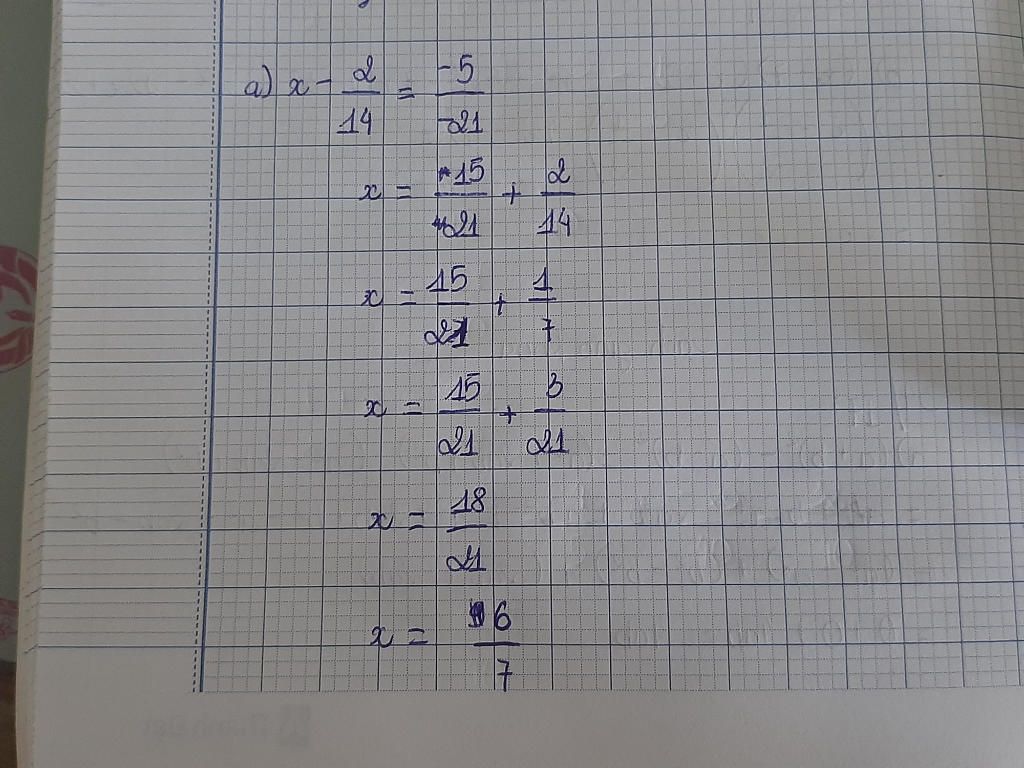 a) x - 2/14 = -5/-21
x = -15/-21 + 2/14
x = 15/21 + 1/7
x = 15/21 + 3/21
x = 18/21
x = 6/7